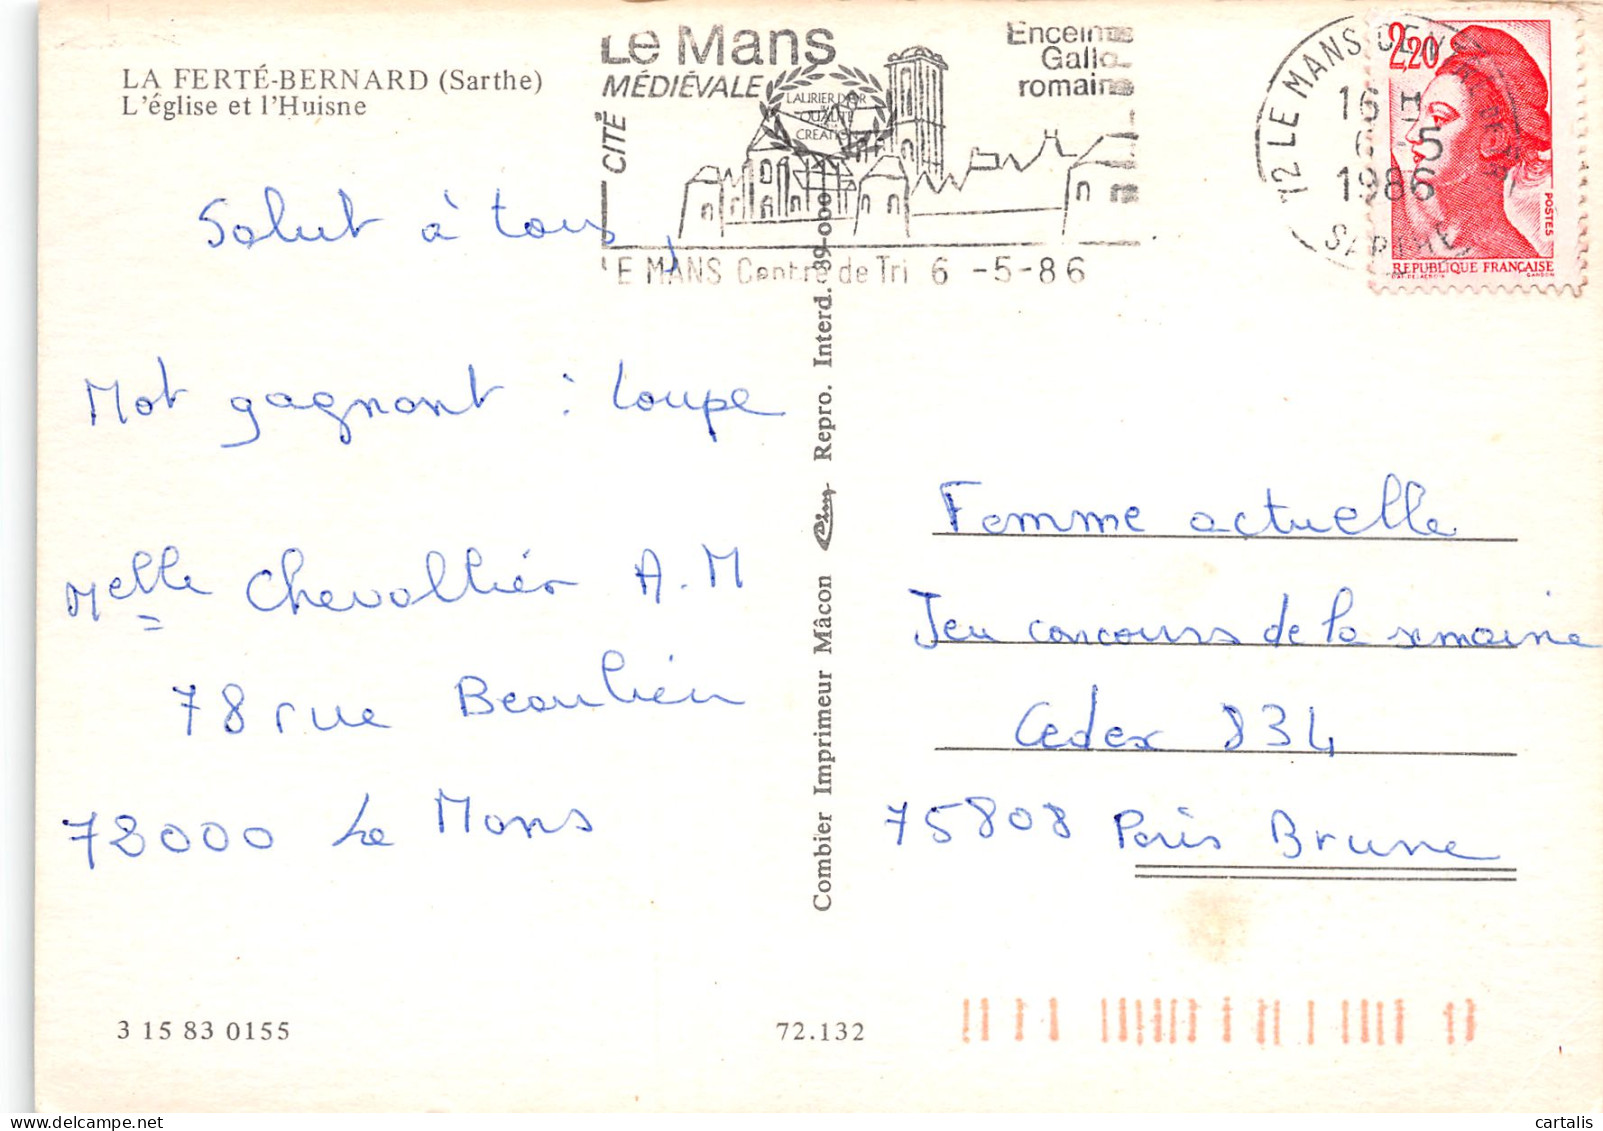 LA FERTÉ-BERNARD (Sarthe)
L'église et l'Huisne
Le Mans
MÉDIÉVALE
CITÉ
Enceinte
Gallo
romaine
LAURIER D'OR
QUALITÉ
CREATION
LE MANS Centre de Tri 6 -5-86
72 LE MANS
16 H
6-5
1986
SARTHE
2,20
POSTES
REPUBLIQUE FRANÇAISE
Salut à tous,
Mot gagnant : Loupe
Melle Chevallier A.M
78 rue Beaulieu
72000 Le Mans
Combier Imprimeur Mâcon Cim Repro. Interd.
Femme actuelle
Jeu concours de la semaine
Cedex 834
75808 Paris Brune
3 15 83 0155
72.132
cartalis